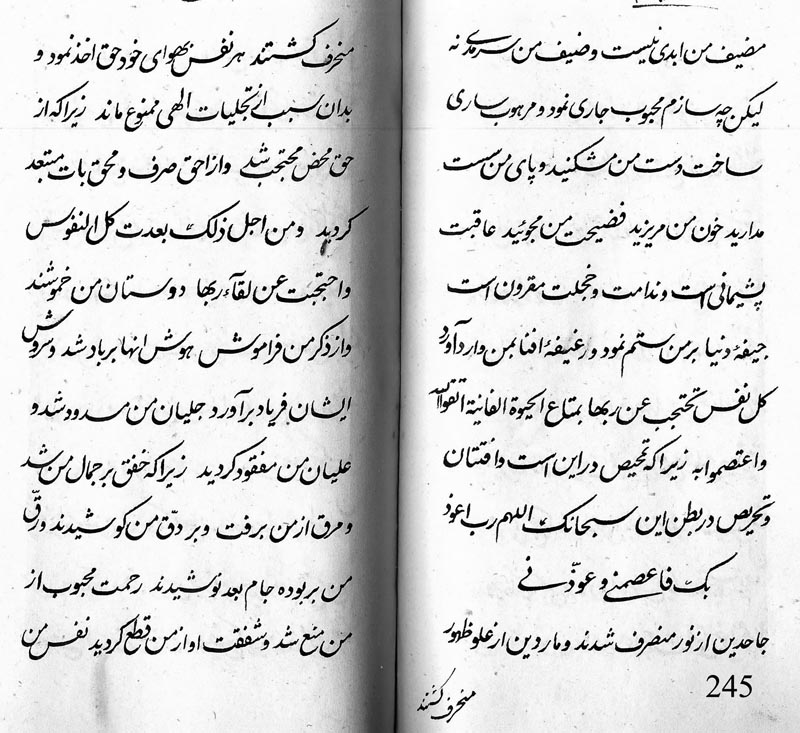 مضیف من ابدی نیست و ضیف من سرمدی نه
لیکن چه سازم محبوب جاری نمود و مرهوب ساری
ساخت دست من مشکنید و پای من سست
مدارید خون من مریزید فضیحت من مجوئید عاقبت
پشیمانی است و ندامت و خجلت مقرون است
جیفهٔ دنیا بر من ستم نمود و رغیفهٔ افنا بمن وارد آورد
کل نفس تحتجب عن ربها بمتاع الحیوة الفانیة اتقوا الله
و اعتصموا به زیرا که تمحیص در این است و افتتان
و تحریص در بطن این سبحانک اللهم رب اعوذ
بک فاعصمنی و عوذنی
جاحدین از نور منصرف شدند و ماردین از علو ظهور
منحرف کشتند
245
منحرف کشتند هر نفس بهوای خود حق اخذ نمود و
بدان سبب از تجلیات الهی ممنوع ماند زیرا که از
حق محض محتجب شد و از احق صرف و محق بات مستبعد
کردید و من اجل ذلک بعدت کل النفوس
و احتجبت عن لقآء ربها دوستان من خموشند
و از ذکر من فراموش هوش انها بر باد شد و سروش
ایشان فریاد برآورد جلیان من مسدود شد و
علیان من مفقود کردید زیرا که خفق بر جمال من شد
و مرق از من برفت و بر دق من کوشیدند ورق
من بربوده جام بعد نوشیدند رحمت محبوب از
من منع شد و شفقت او از من قطع کردید نفس من